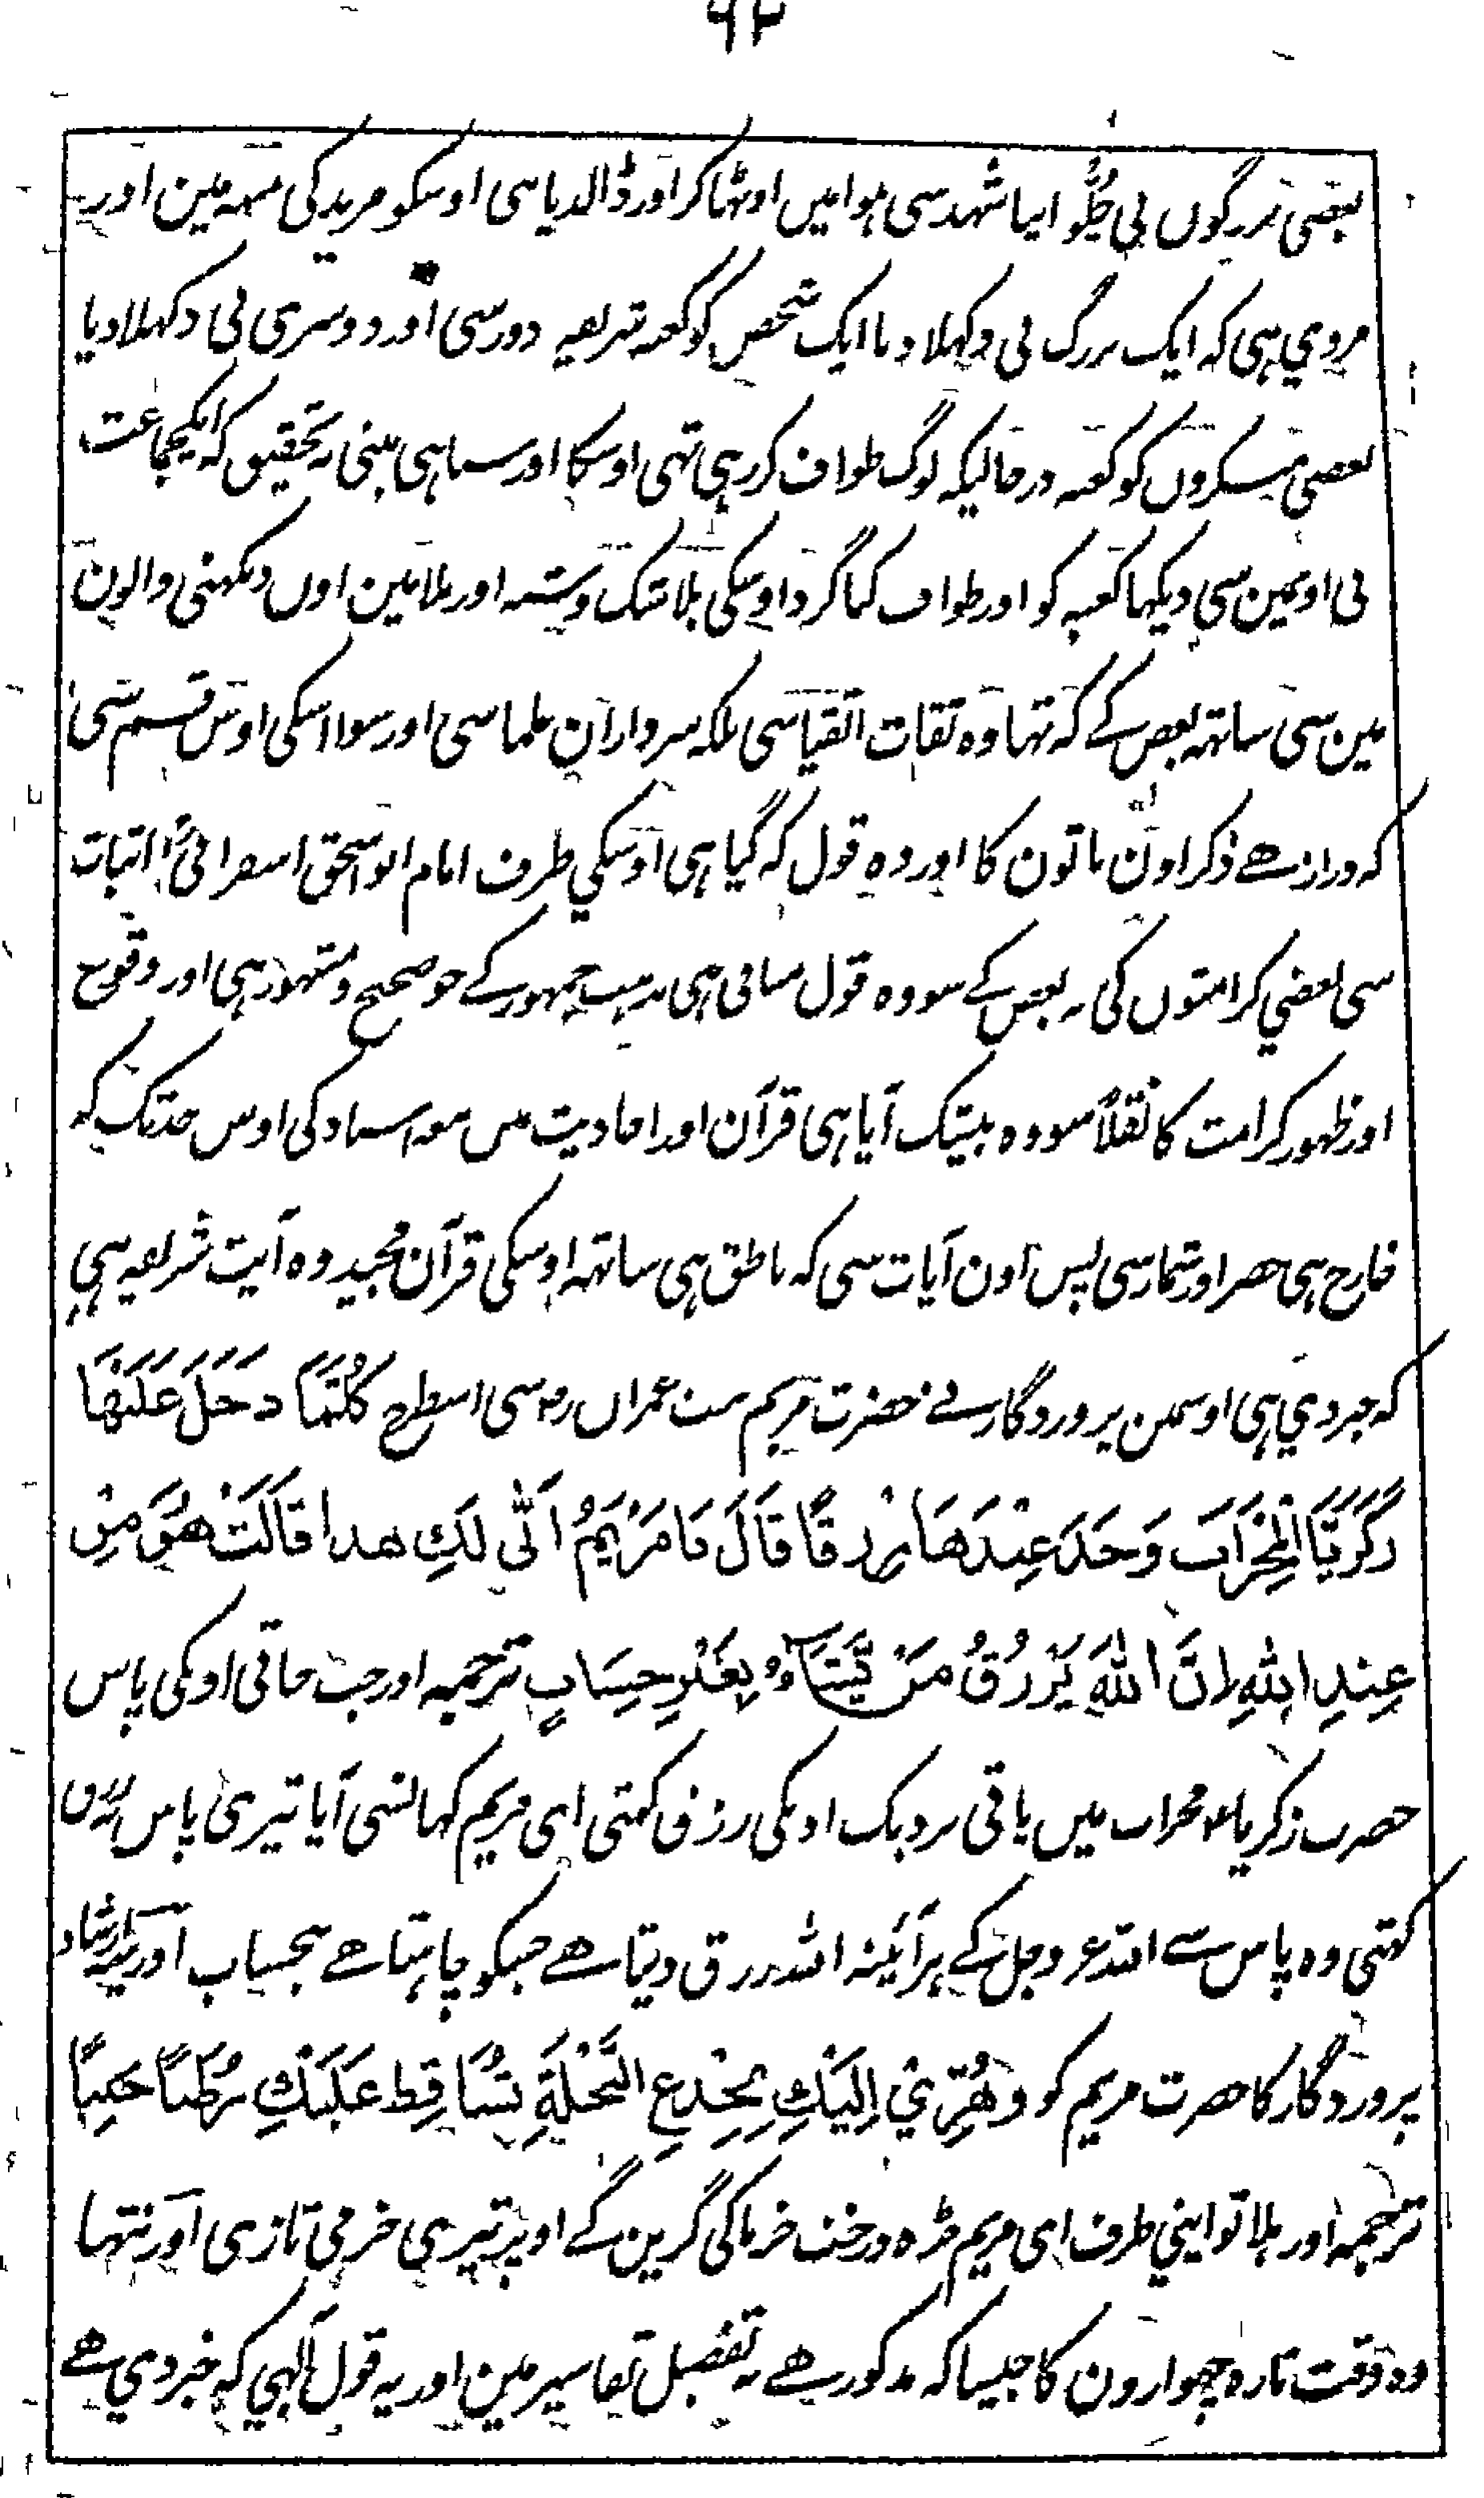 ٩٢
بعضی بزرگوں نی چُلّو اپنا شہد سی ہوا میں اوٹھا کر اور ڈالدیا سی اوسکو مرید کی منہہ مین اور
مروی ہی کہ ایک بزرگ نی دکہلا دیا ایک شخص کو کعبہ شریعہ دور سی اور دوسری نی دکہلا دیا
بعضی منکروں کو کعبہ در حالیکہ لوگ طواف کر رہی تھی اوسکا اور سنا ہی مینی بہ تحقیق کہ ایکجماعت
نی اونہین سی دیکہا کعبہ کو اور طواف کیا گرد اوسکی بلا شک و شبہ اور ملا مین اوں دیکہنی والون
مین سی ساتہہ بعض کے کہ تہا وہ ثقات اتقیا سی بلکہ سرداران علما سی اور سوا اسکی اوس قسم سی
کہ دراز ہے ذکر اون باتون کا اور وہ قول کہ گیا ہی اوسکی طرف امام ابو اسحق اسفرائنی اثبات
سی بعضی کرامتوں کی نہ بعض کے سو وہ قول منافی ہی مذہب جمہور کے جو صحیح و مشہور ہی اور وقوع
اور ظہور کرامت کا نقلاً سو وہ بیشک آیا ہی قرآن اور احادیث میں معہ اسناد کی اوس حد تک کہ
خارج ہی حصر اور شمار سی پس اون آیات سی کہ ناطق ہی ساتہہ اوسکی قرآن مجید وہ آیت شریعہ ہی
کہ خبر دی ہی اوسمین پروردگار نے حضرت مریم بنت عمران رض سی اسطرح کُلَّمَا دَخَلَ عَلَیْهَا
زَکَرِیَّا الْمِحْرَابَ وَجَدَ عِنْدَهَا رِزْقًا قَالَ یَا مَرْیَمُ اَنّٰی لَكِ هذا قَالَتْ هُوَ مِنْ
عِنْدِ اللّٰهِ اِنَّ اللّٰهَ یَرْزُقُ مَنْ یَّشَاءُ بِغَیْرِ حِسَابٍ ترجمہ اور جب جاتی اونکی پاس
حضرت زکریا محراب میں پاتی نزدیک اونکی رزق کہتی ای مریم کہانسی آیا تیری پاس یہ رزق
کہتی وہ پاس سے اللہ عز وجل کے ہر آئینہ اللہ رزق دیتا ہے جسکو چاہتا ہے بیحساب اور یہ ارشاد
پروردگار کا حضرت مریم کو وَهُزِّیْ اِلَیْكِ بِجِذْعِ النَّخْلَةِ تُسَاقِطْ عَلَیْكِ رُطَبًا جَنِیًّا
ترجمہ اور ہلا تو اپنی طرف ای مریم جڑہ درخت خرما کی گرین گے اوپر تیری خرمی تازی اور نتہا
وہ وقت تازہ چہوارون کا جیسا کہ مذکور ہے بہ تفصیل تفاسیر مین اور یہ قول الٰہی کہ خبر دی ہے